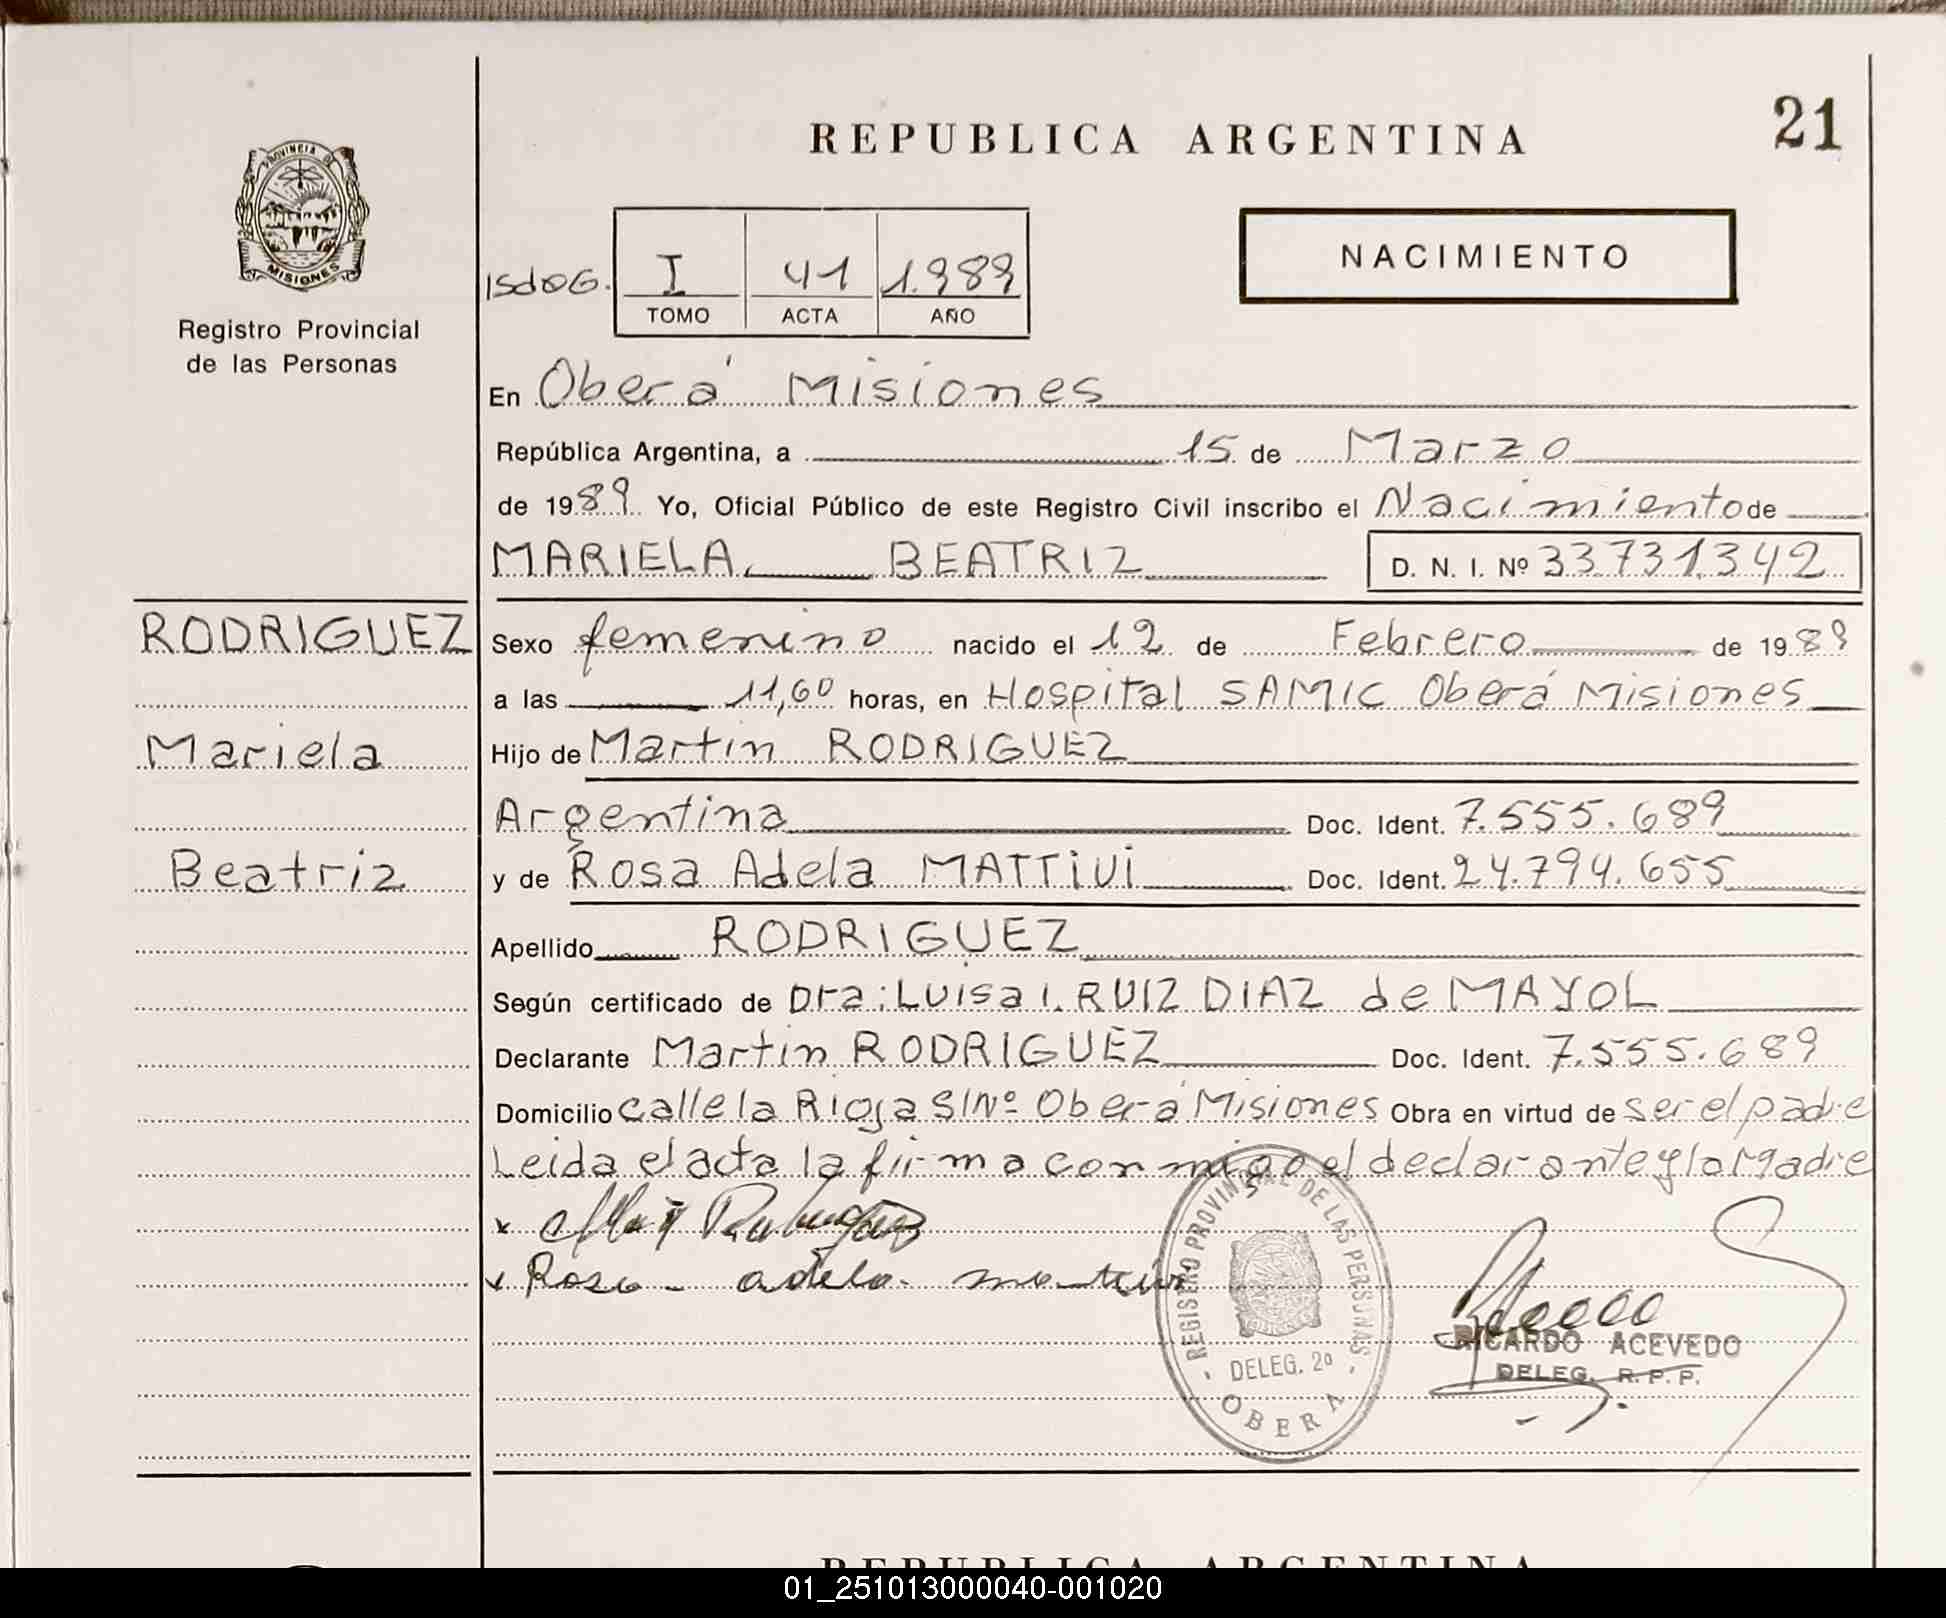 REPUBLICA ARGENTINA
21
PROVINCIA DE
MISIONES
Registro Provincial
de las Personas
I 41 1.989
TOMO ACTA AÑO
NACIMIENTO
En Oberá Misiones
República Argentina, a 15 de Marzo
de 1989 Yo, Oficial Público de este Registro Civil inscribo el Nacimiento de
MARIELA BEATRIZ D. N. I. Nº 33.731.342
RODRIGUEZ
Mariela
Beatriz
Sexo femenino nacido el 12 de Febrero de 1989
a las 11,60 horas, en Hospital SAMIC Oberá Misiones
Hijo de Martin RODRIGUEZ
Argentina Doc. Ident. 7.555.689
y de Rosa Adela MATTiVi Doc. Ident. 24.794.655
Apellido RODRIGUEZ
Según certificado de Dra: Luisa I. RUIZ DIAZ de MAYOL
Declarante Martin RODRIGUEZ Doc. Ident. 7.555.689
Domicilio calle la Rioja S/Nº Oberá Misiones Obra en virtud de ser el padre
Leida el acta la firma conmigo el declarante y la madre
Rosa adela
REGISTRO PROVINCIAL DE LAS PERSONAS
DELEG. 2º
OBERA
RICARDO ACEVEDO
DELEG. R. P. P.
REPUBLICA ARGENTINA
01_251013000040-001020